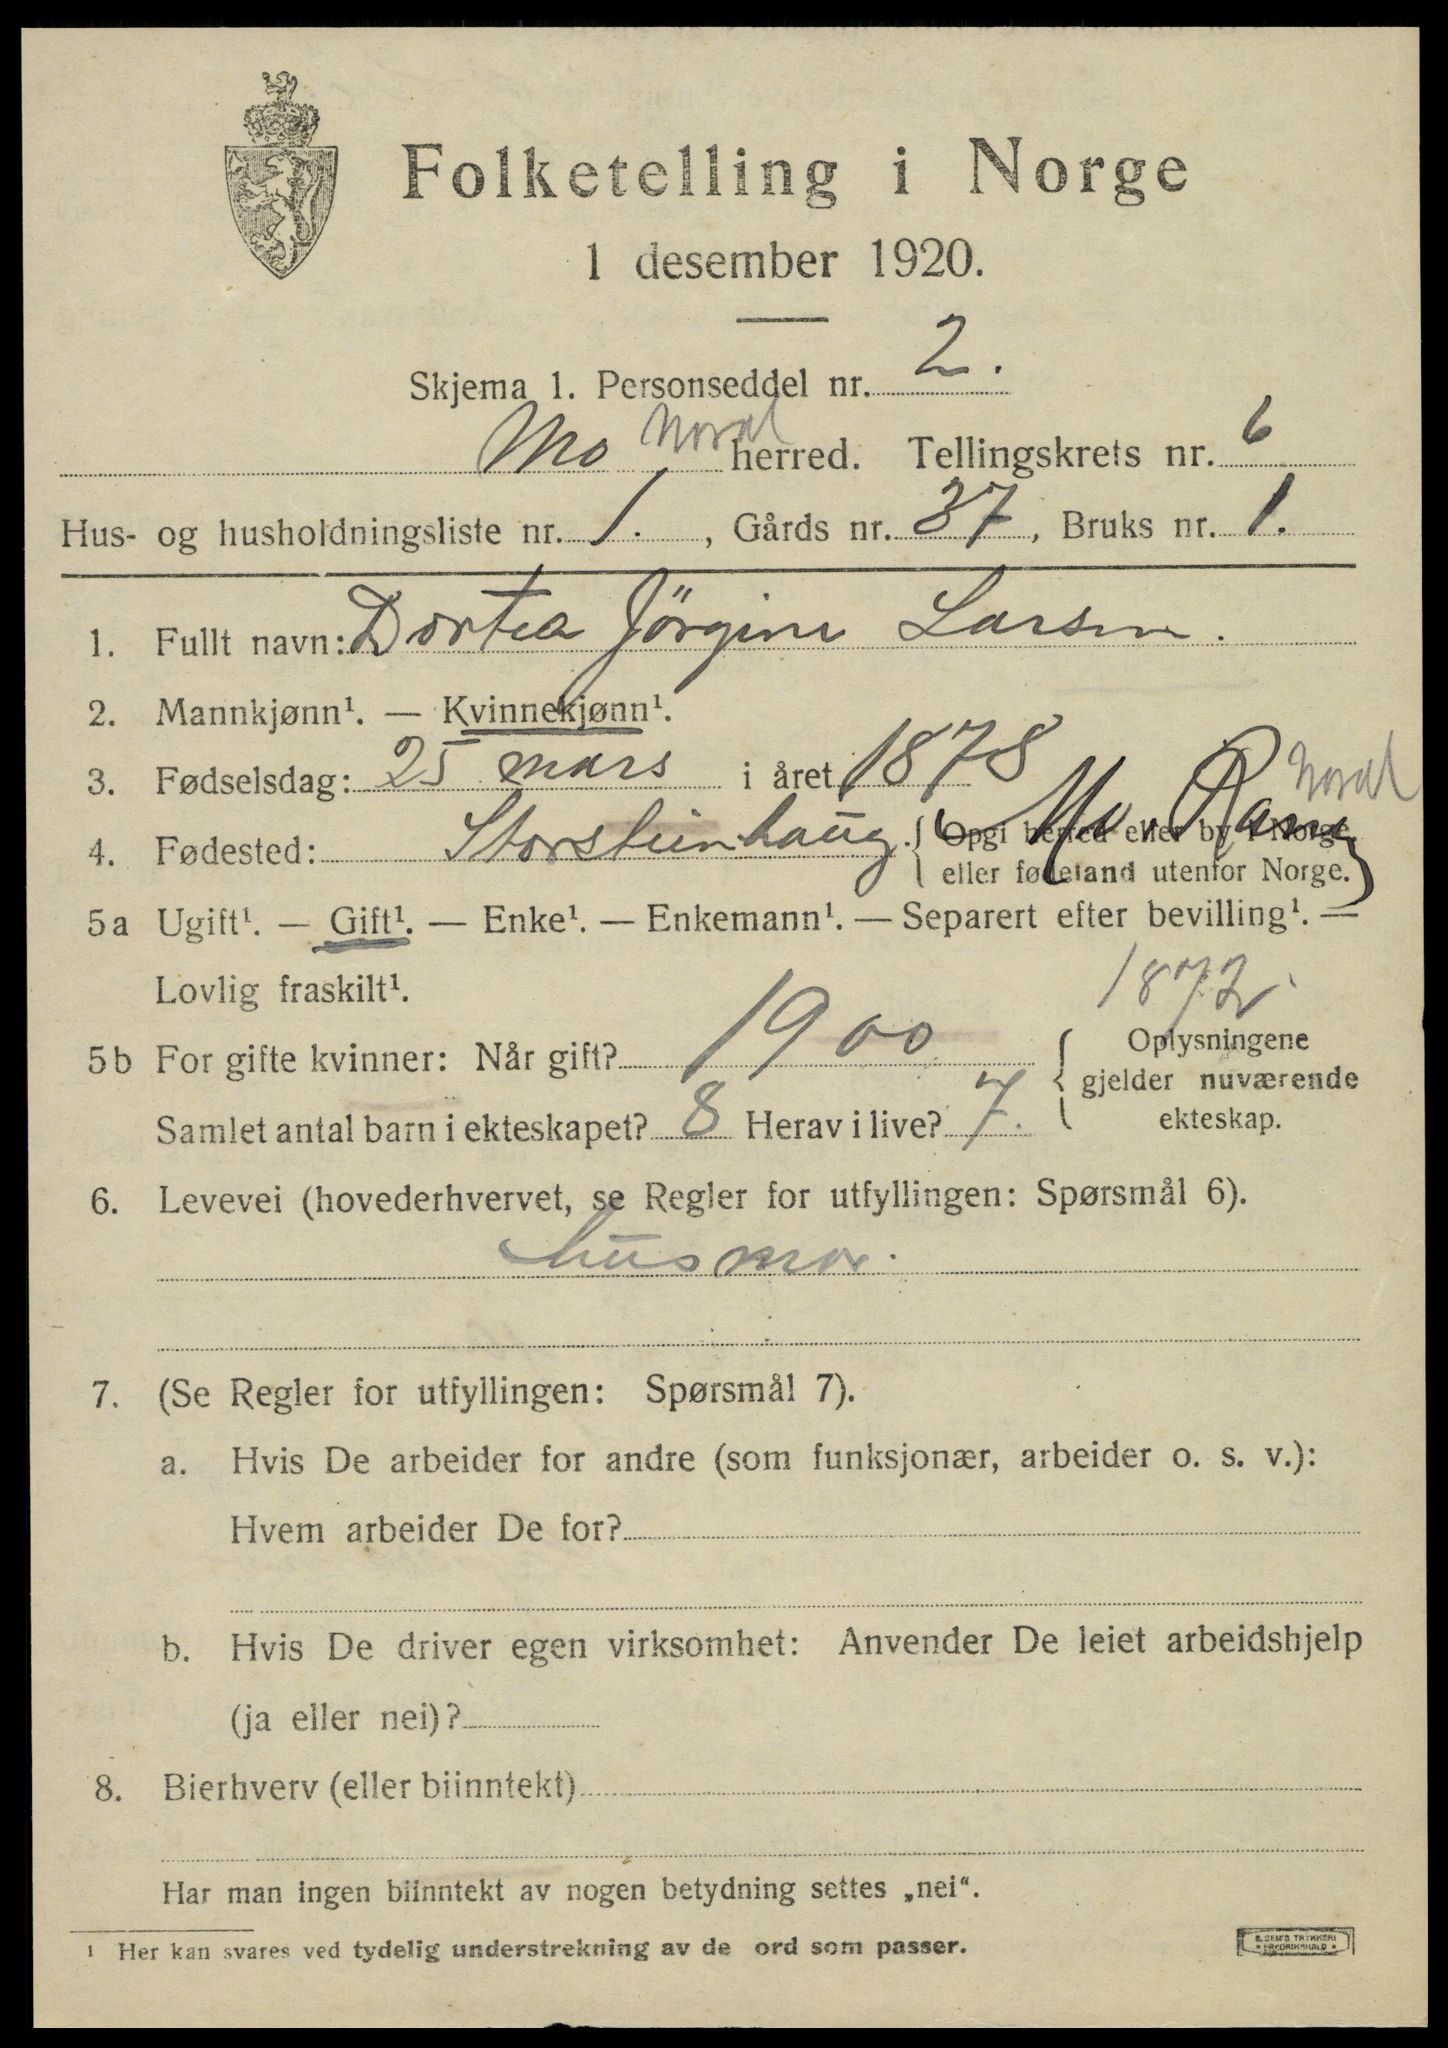 Folketelling i Norge
1 desember 1920.
Skjema 1. Personseddel nr. 2.
Mo Nordl herred. Tellingskrets nr. 6
Hus- og husholdningsliste nr. 1. , Gårds nr. 37, Bruks nr. 1.
1. Fullt navn: Dortea Jörgine Larsen.
2. Mannkjønn¹. — Kvinnekjønn¹.
3. Fødselsdag: 25 mars i året 1878
4. Fødested: Storsteinhaug. { Opgi herred eller by i Norge, Mo. Rana Nordl
eller fødeland utenfor Norge.
5a Ugift¹. — Gift¹. — Enke¹. — Enkemann¹. — Separert efter bevilling¹. —
Lovlig fraskilt¹. 1872
5b For gifte kvinner: Når gift? 1900 { Oplysningene
gjelder nuværende
Samlet antal barn i ekteskapet? 8 Herav i live? 7. ekteskap.
6. Levevei (hovederhvervet, se Regler for utfyllingen: Spørsmål 6).
husmor.
7. (Se Regler for utfyllingen: Spørsmål 7).
a. Hvis De arbeider for andre (som funksjonær, arbeider o. s. v.):
Hvem arbeider De for?
b. Hvis De driver egen virksomhet: Anvender De leiet arbeidshjelp
(ja eller nei)?
8. Bierhverv (eller biinntekt)
Har man ingen biinntekt av nogen betydning settes „nei“.
¹ Her kan svares ved tydelig understrekning av de ord som passer.
E. SEM'S TRYKKERI
FREDRIKSHALD